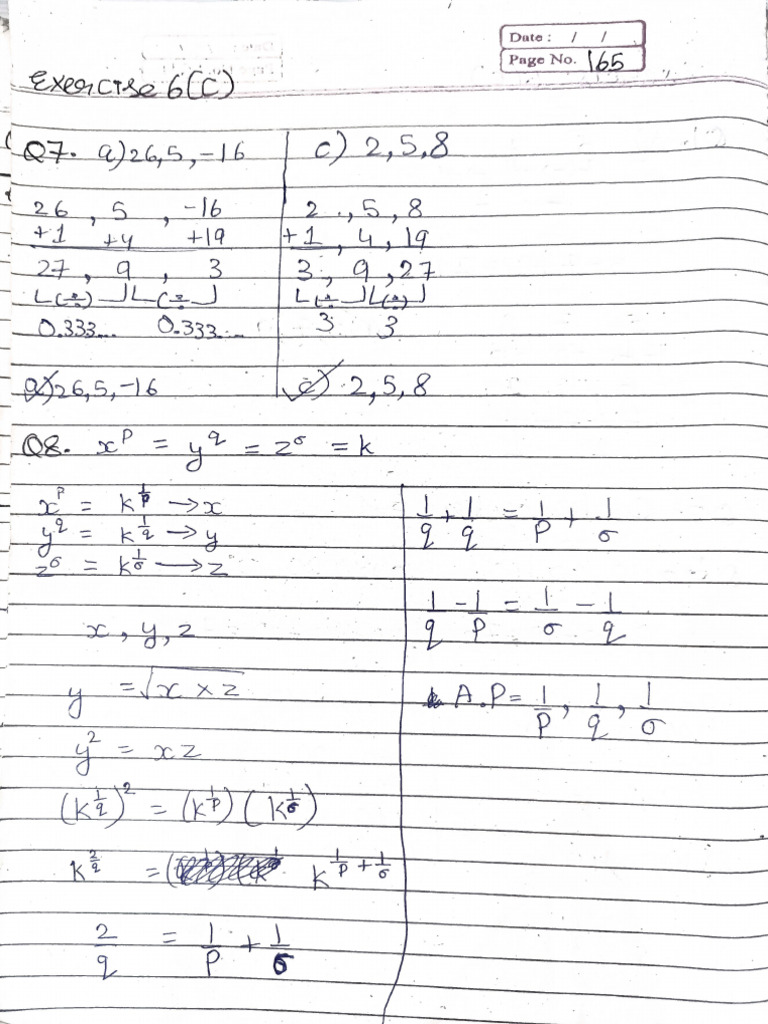 Date: / /
Page No. 165
Exercise 6(C)
Q7. a) 26, 5, -16
26 , 5 , -16
+1 +4 +19
27 , 9 , 3
(÷) (÷)
0.333... 0.333....
a) 26, 5, -16
c) 2, 5, 8
2 , 5 , 8
+1 , 4 , 19
3 , 9 , 27
(÷) (÷)
3 3
c) 2, 5, 8
Q8. x^p = y^q = z^σ = k
x^p = k^(1/p) → x
y^q = k^(1/q) → y
z^σ = k^(1/σ) → z
x, y, z
y = √(x × z)
y² = xz
(k^(1/q))² = (k^(1/p)) (k^(1/σ))
k^(2/q) = k^(1/p + 1/σ)
2/q = 1/p + 1/σ
1/q + 1/q = 1/p + 1/σ
1/q - 1/p = 1/σ - 1/q
A.P = 1/p, 1/q, 1/σ